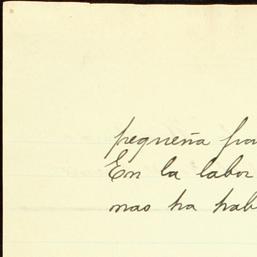 pequeña fra
En la labor
nas ha hab